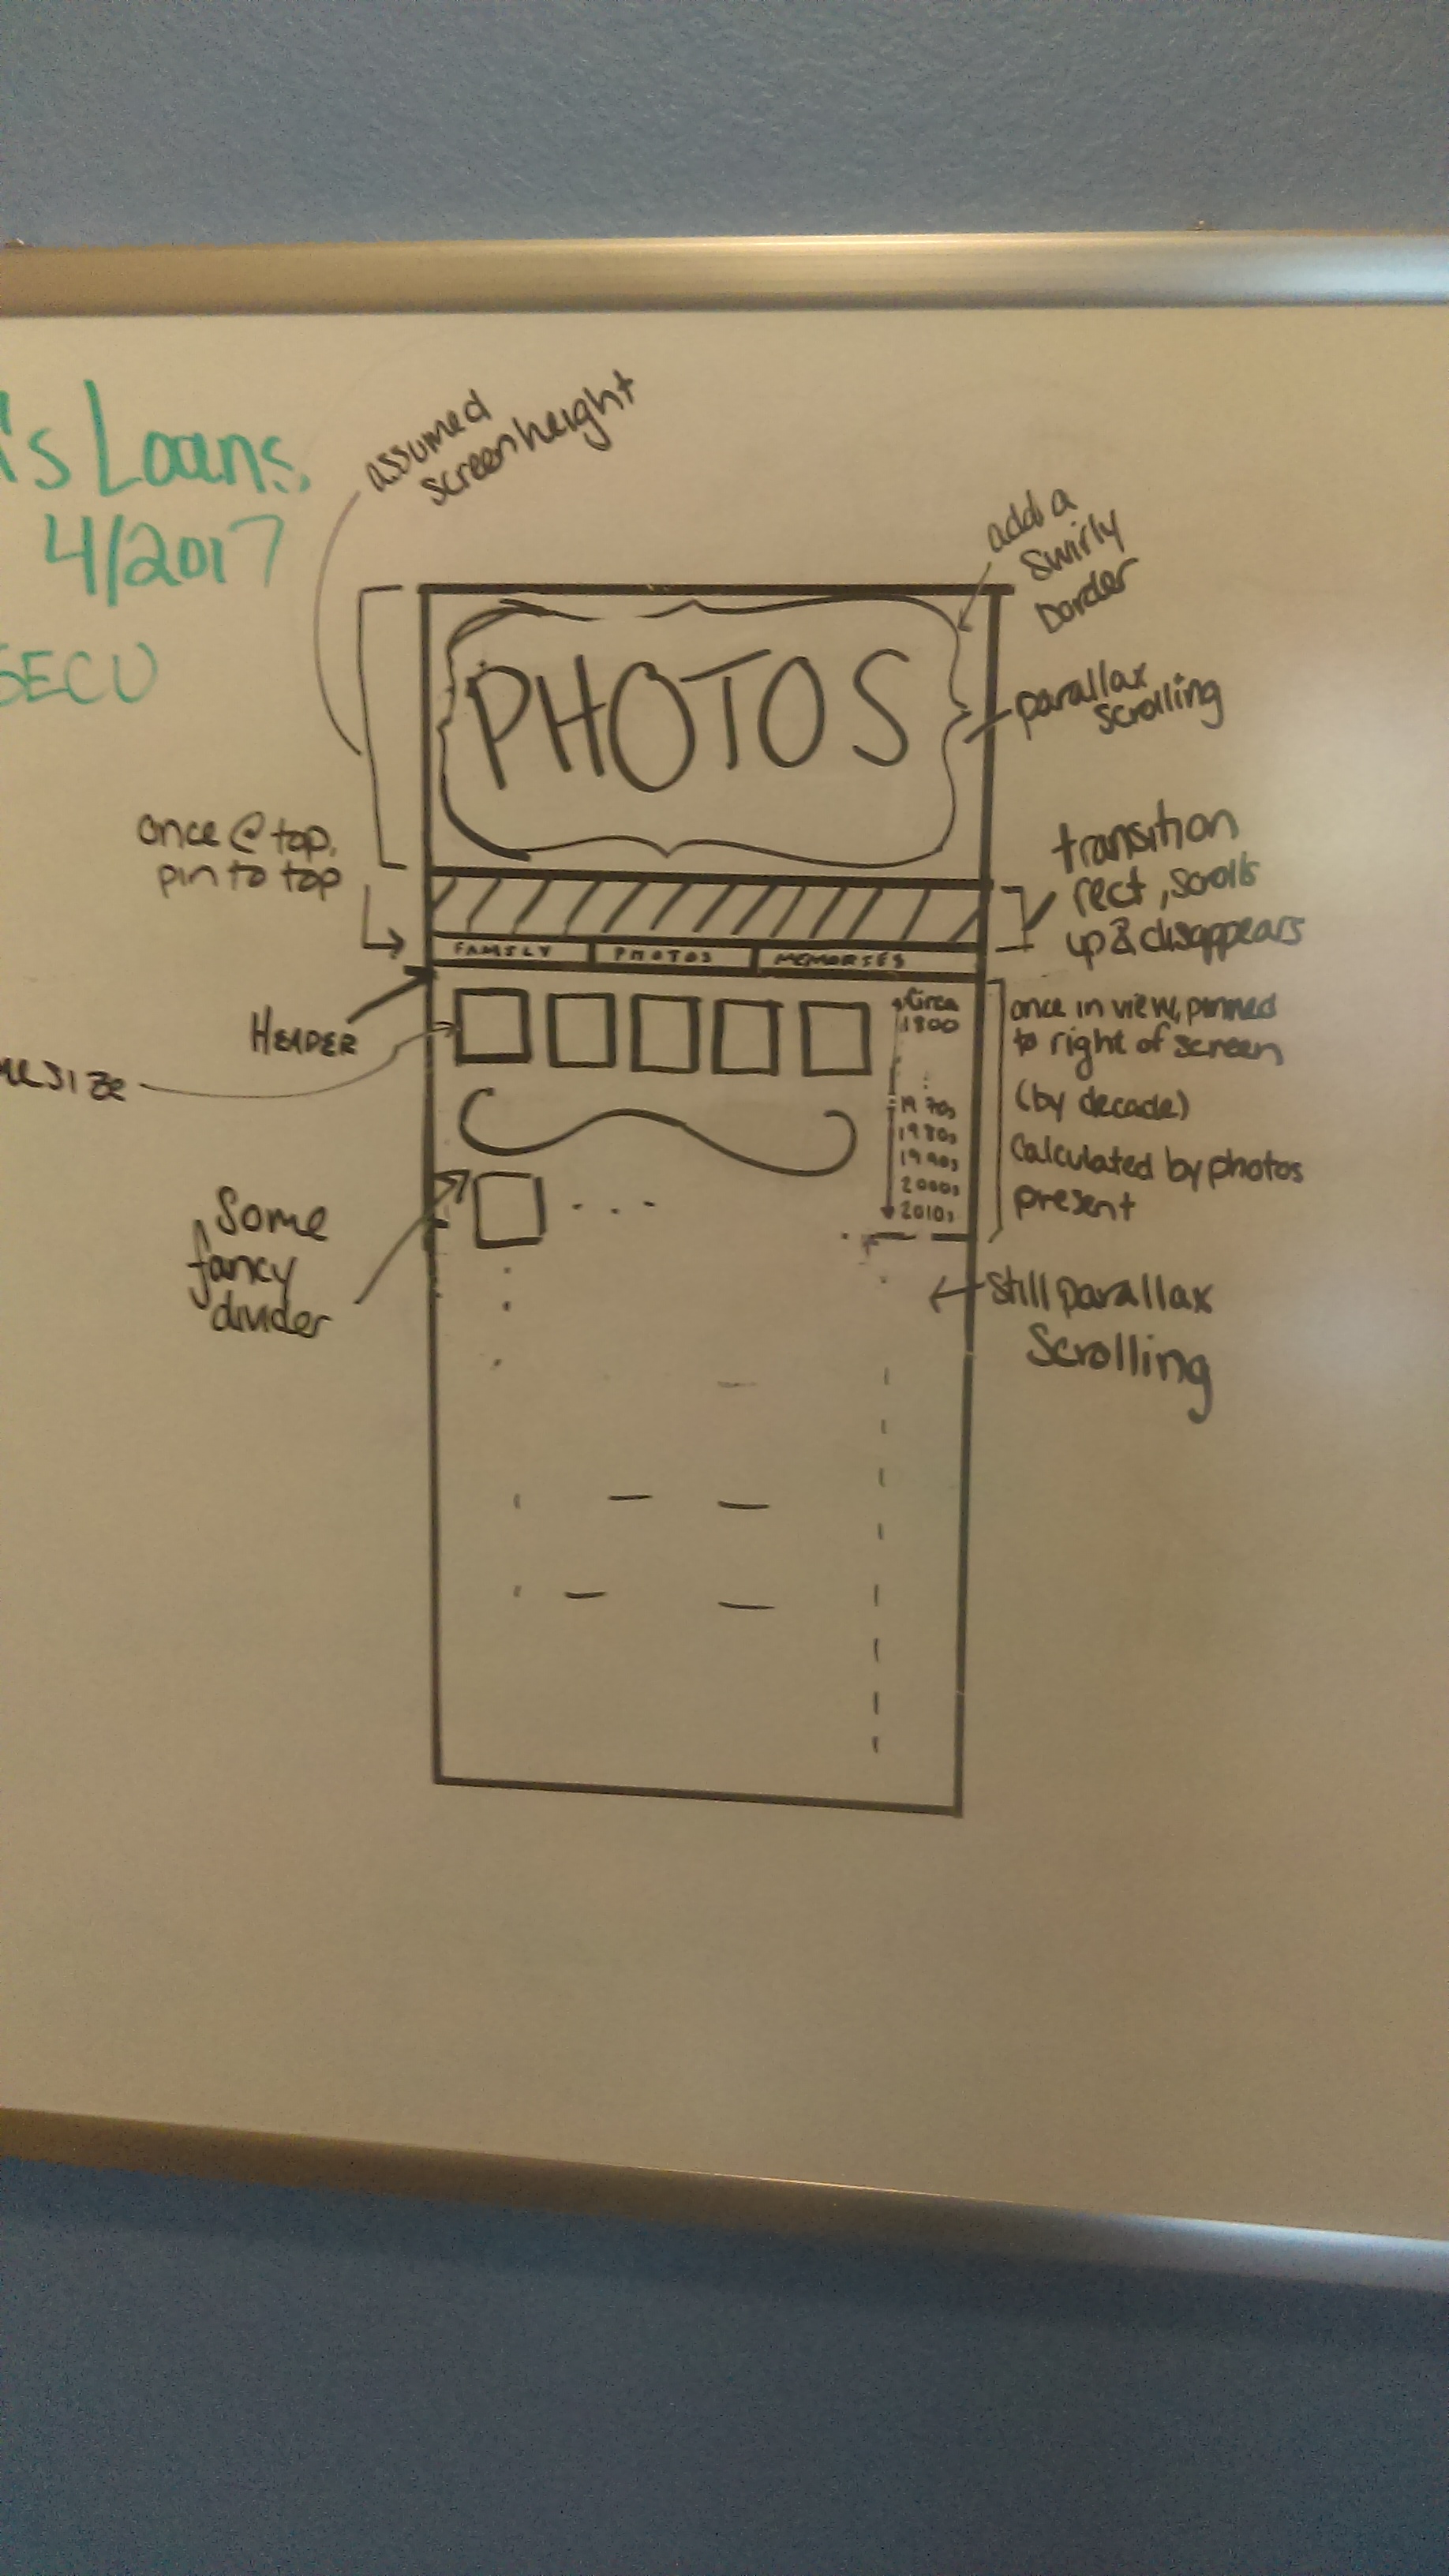 's Loans
4/2017
SECU
assumed
screen height
add a
swirly
border
PHOTOS
parallax
scrolling
once @ top,
pin to top
transition
rect, scrolls
up & disappears
FAMILY
PHOTOS
MEMORIES
HEADER
SIZE
Circa
1800
1970s
1980s
1990s
2000s
2010s
once in view, pinned
to right of screen
(by decade)
Calculated by photos
present
Some
fancy
divider
still parallax
Scrolling